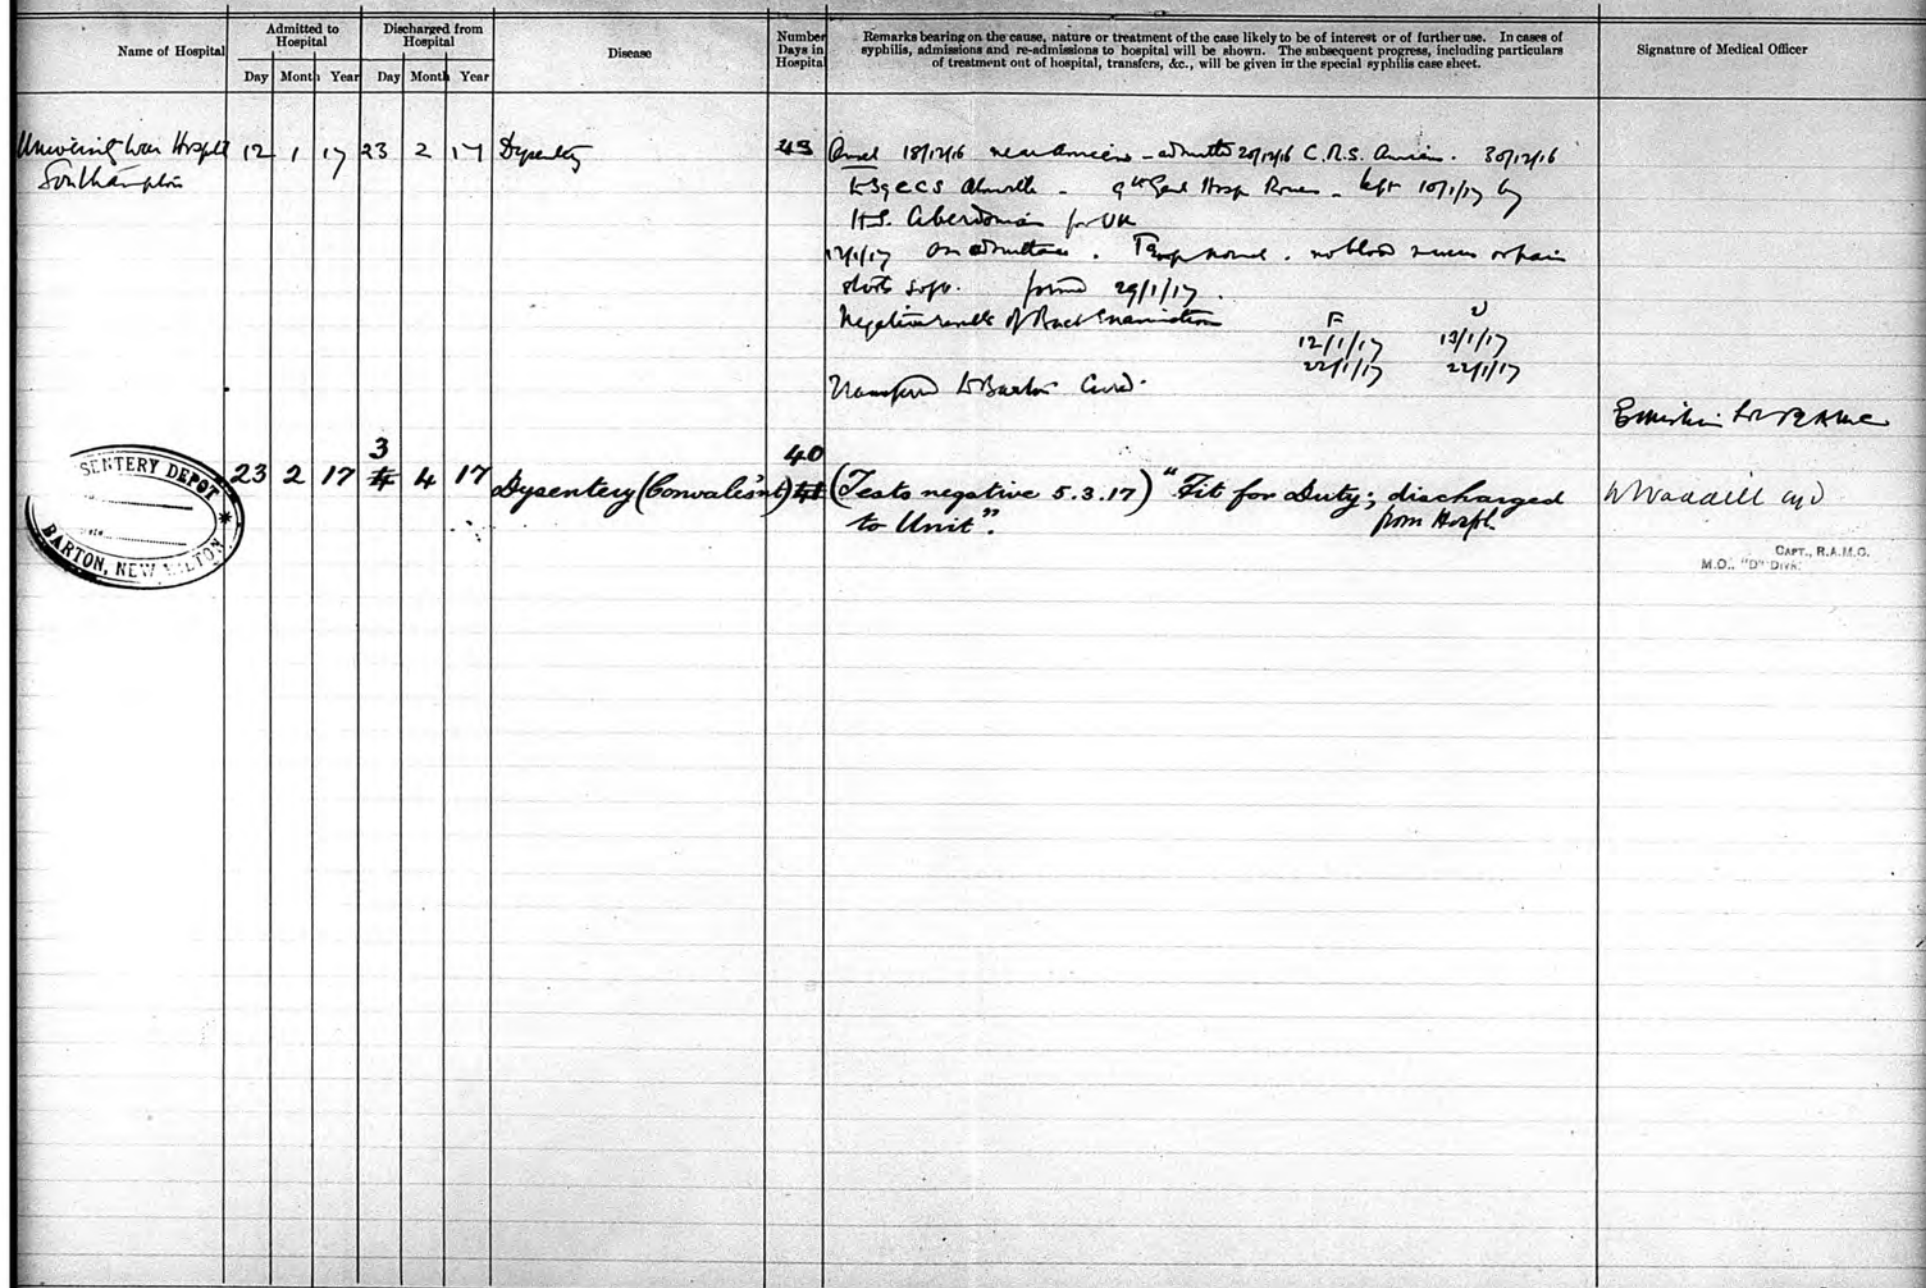 Name of Hospital
Admitted to Hospital
Discharged from Hospital
Disease
Number Days in Hospital
Remarks bearing on the cause, nature or treatment of the case likely to be of interest or of further use. In cases of
syphilis, admissions and re-admissions to hospital will be shown. The subsequent progress, including particulars
of treatment out of hospital, transfers, &c., will be given in the special syphilis case sheet.
Signature of Medical Officer
Day Month Year Day Month Year
University War Hospl 12 1 17 23 2 17 Dysentery 43 Onset 18/12/16 near Amiens - admitted 20/12/16 C.R.S. Amiens. 30/12/16
Southampton
CCS - 9th Genl Hosp Rouen - left 10/1/17 by
H.S. Aberdonian for UK
12/1/17 on admittance. Temp normal. no blood mucus or pain
stools soft. formed 29/1/17.
Negative results of Bact Examination F U
12/1/17 13/1/17
22/1/17 22/1/17
Transferred to Barton Conv.
SENTERY DEPOT
BARTON, NEW MILTON
23 2 17 3 4 4 17 Dysentery (Convales'nt) 40 41 (Tests negative 5.3.17) "Fit for Duty; discharged
to Unit". from Hospl.
W Waddell
CAPT., R.A.M.C.
M.O., "D" DIVN.